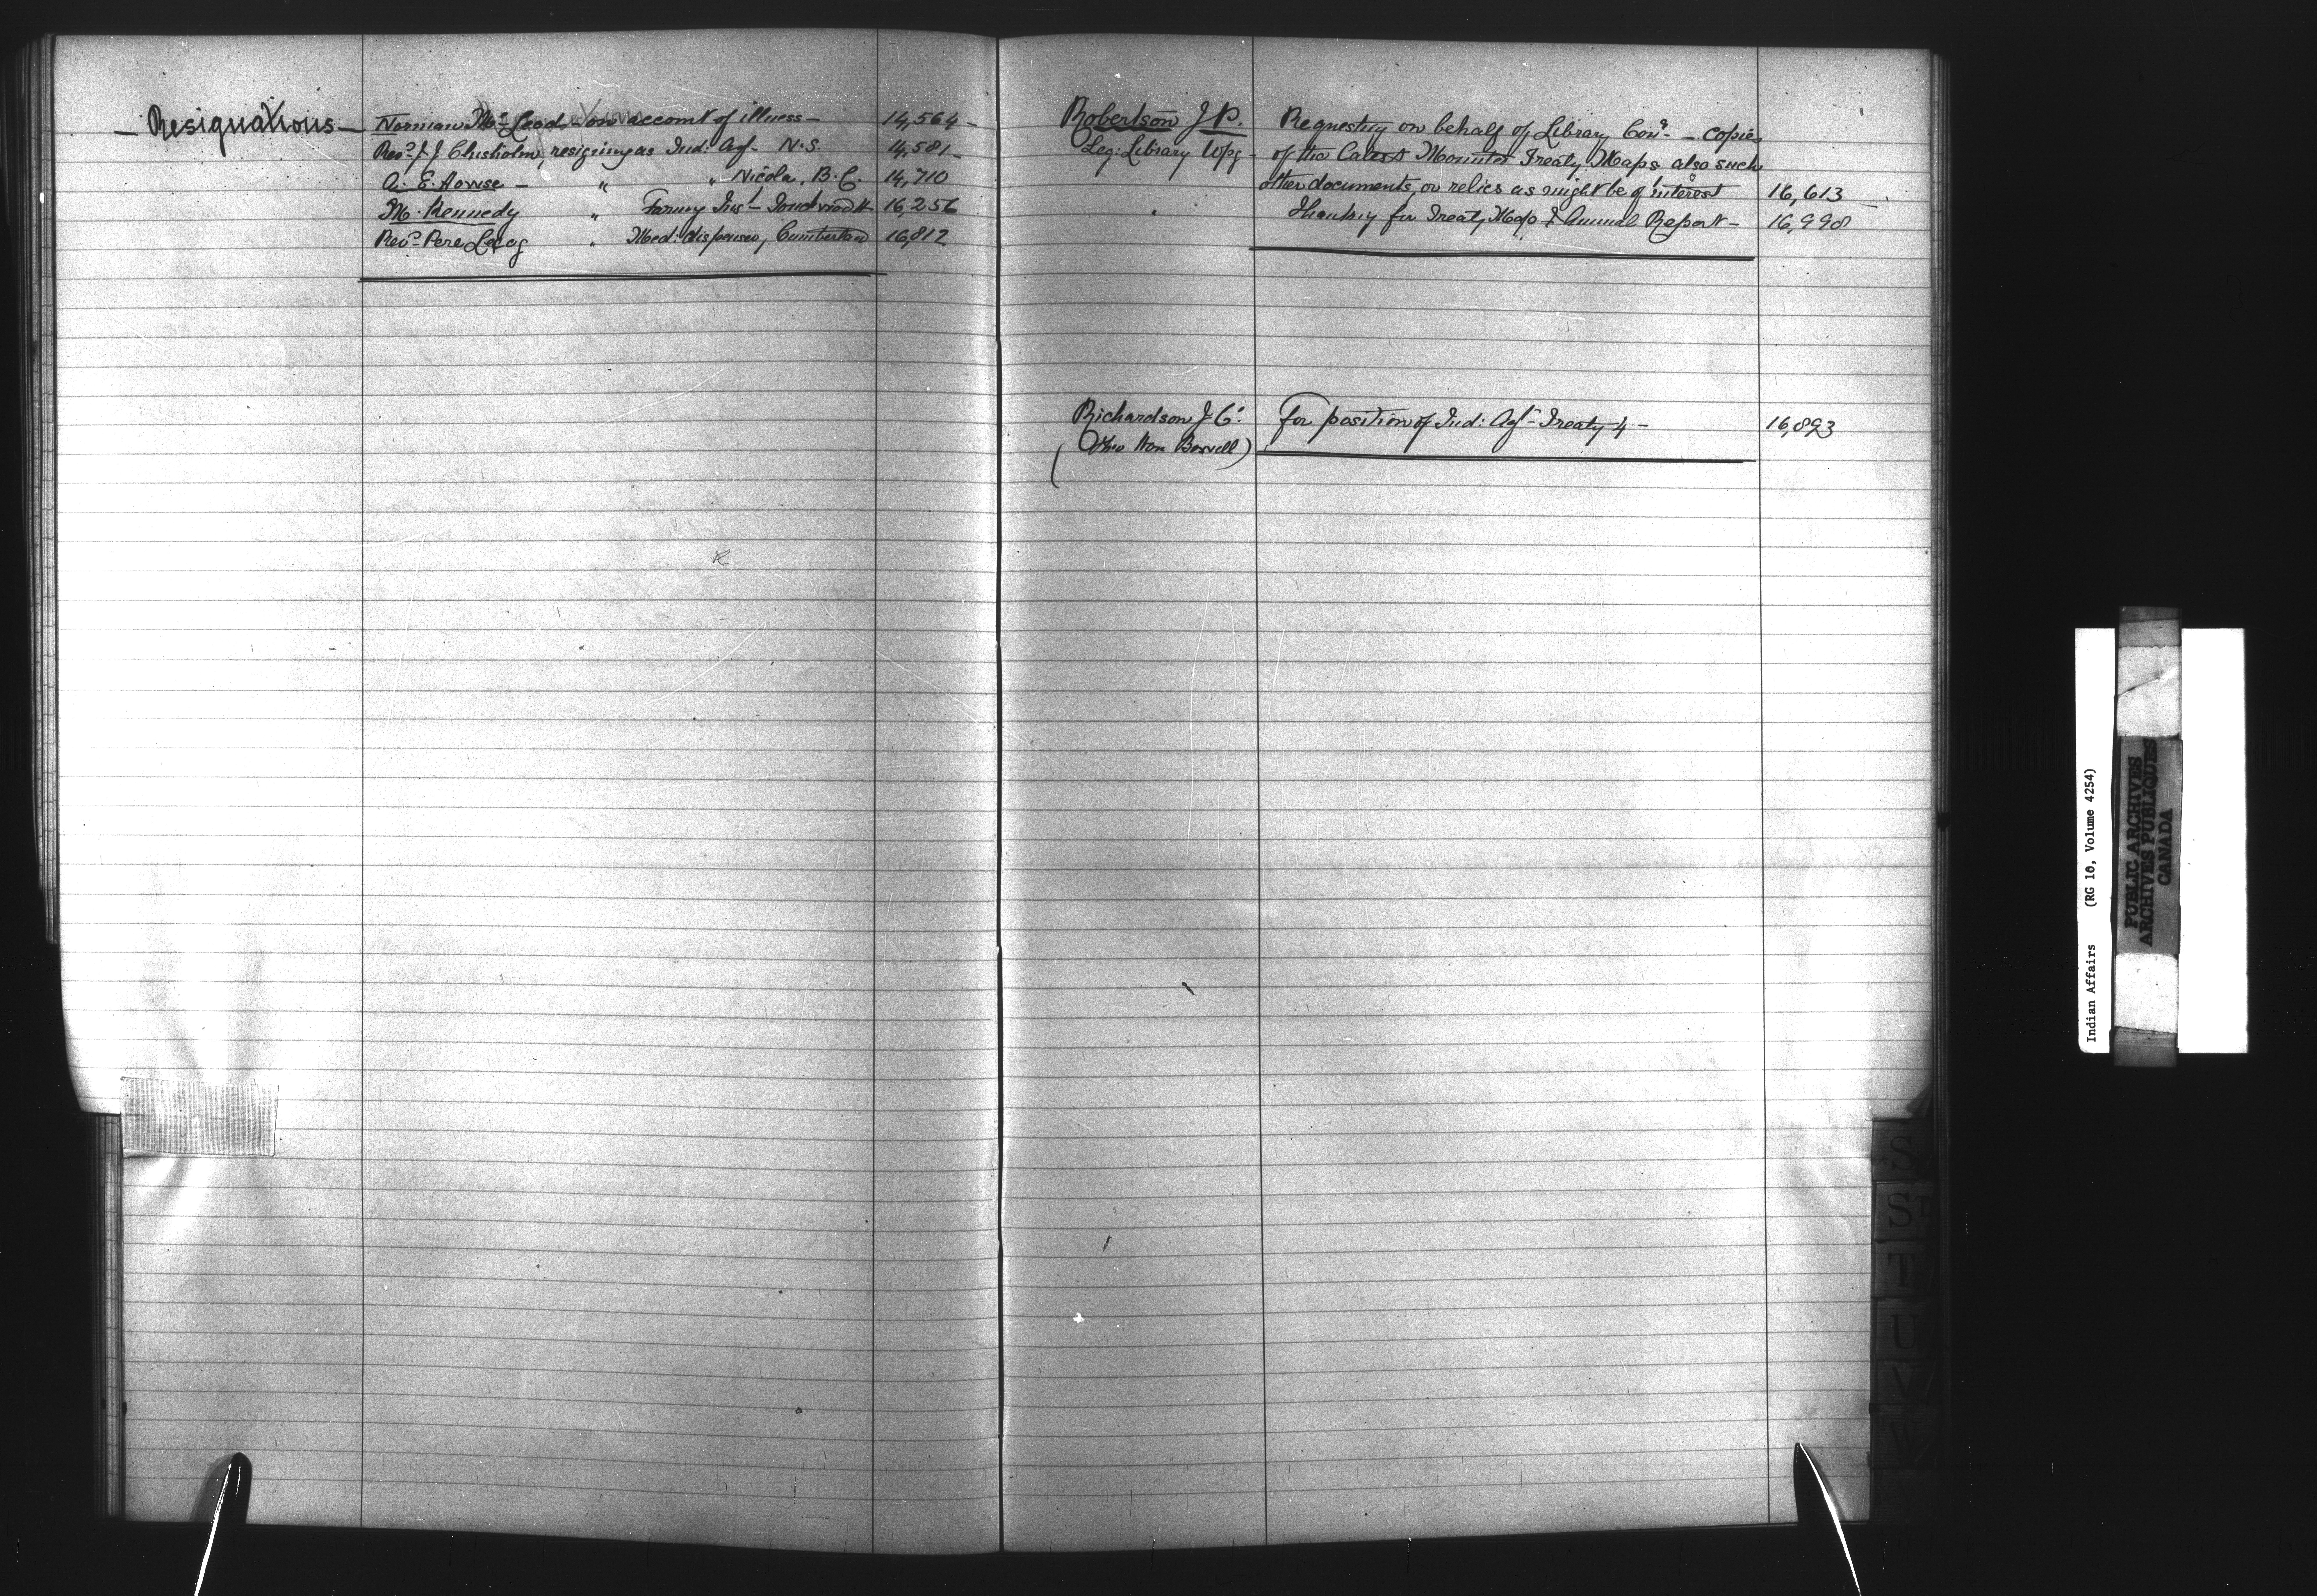 — Resignations —
Norman McLeod, on account of illness — 14,564 —
Revd. J. J. Chisholm, resigning as Ind: Agt. N.S. 14,581 —
A. E. Howse — " " Nicola, B.C. 14,710
M. Kennedy " Farmg Inst. Touchwood H 16,256
Revd. Pere Lecoq " Med: dispenser, Cumberland 16,812
Robertson J P.
Leg: Library Wpg —
Requesting on behalf of Library Com. — copies
of the Latest Mounted Treaty Maps also such
other documents, or relics as might be of interest 16,613 —
Thanking for Treaty Map & Annual Report — 16,998
Richardson J C.
(Thro Hon Bowell)
For position of Ind: Agt — Treaty 4 — 16,893
S
ST
T
U
V
W
Indian Affairs (RG 10, Volume 4254)
PUBLIC ARCHIVES
ARCHIVES PUBLIQUES
CANADA